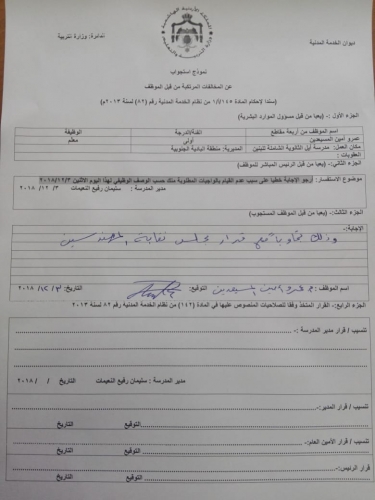 ديوان الخدمة المدنية
المملكة الأردنية الهاشمية
الدائرة: وزارة التربية
نموذج استجواب
عن المخالفات المرتكبة من قبل الموظف
(سنداً لاحكام المادة ١٤٥/أ/١ من نظام الخدمة المدنية رقم (٨٢) لسنة ٢٠١٣م)
الجزء الأول :- (يعبأ من قبل مسؤول الموارد البشرية)
اسم الموظف من أربعة مقاطع الفئة/الدرجة الوظيفة
عمرو أمين المسيعدين أولى معلم
مكان العمل: مدرسة أيل الثانوية الشاملة للبنين المديرية: منطقة البادية الجنوبية
العقوبات :
الجزء الثاني :- (يعبأ من قبل الرئيس المباشر للموظف)
موضوع الاستفسار: أرجو الإجابة خطيا على سبب عدم القيام بالواجبات المطلوبة منك حسب الوصف الوظيفي لهذا اليوم الاثنين ٢٠١٨/١٢/٣
مدير المدرسة : سليمان رفيع النعيمات ٣ / ١٢ / ٢٠١٨
الجزء الثالث:- (يعبأ من قبل الموظف المستجوب)
الإجابة:-
وذلك قرار مجلس نقابة
اسم الموظف : عمرو أمين المسيعدين التوقيع : التاريخ: ٣ / ١٢ / ٢٠١٨
الجزء الرابع:- القرار المتخذ وفقا للصلاحيات المنصوص عليها في المادة (١٤٢) من نظام الخدمة المدنية رقم ٨٢ لسنة ٢٠١٣
تنسيب / قرار مدير المدرسة :-
مدير المدرسة : سليمان رفيع النعيمات التاريخ / / ٢٠١٨
تنسيب / قرار المدير:-
التوقيع التاريخ
تنسيب / قرار الأمين العام:-
التوقيع التاريخ
قرار الرئيس:-
التوقيع التاريخ